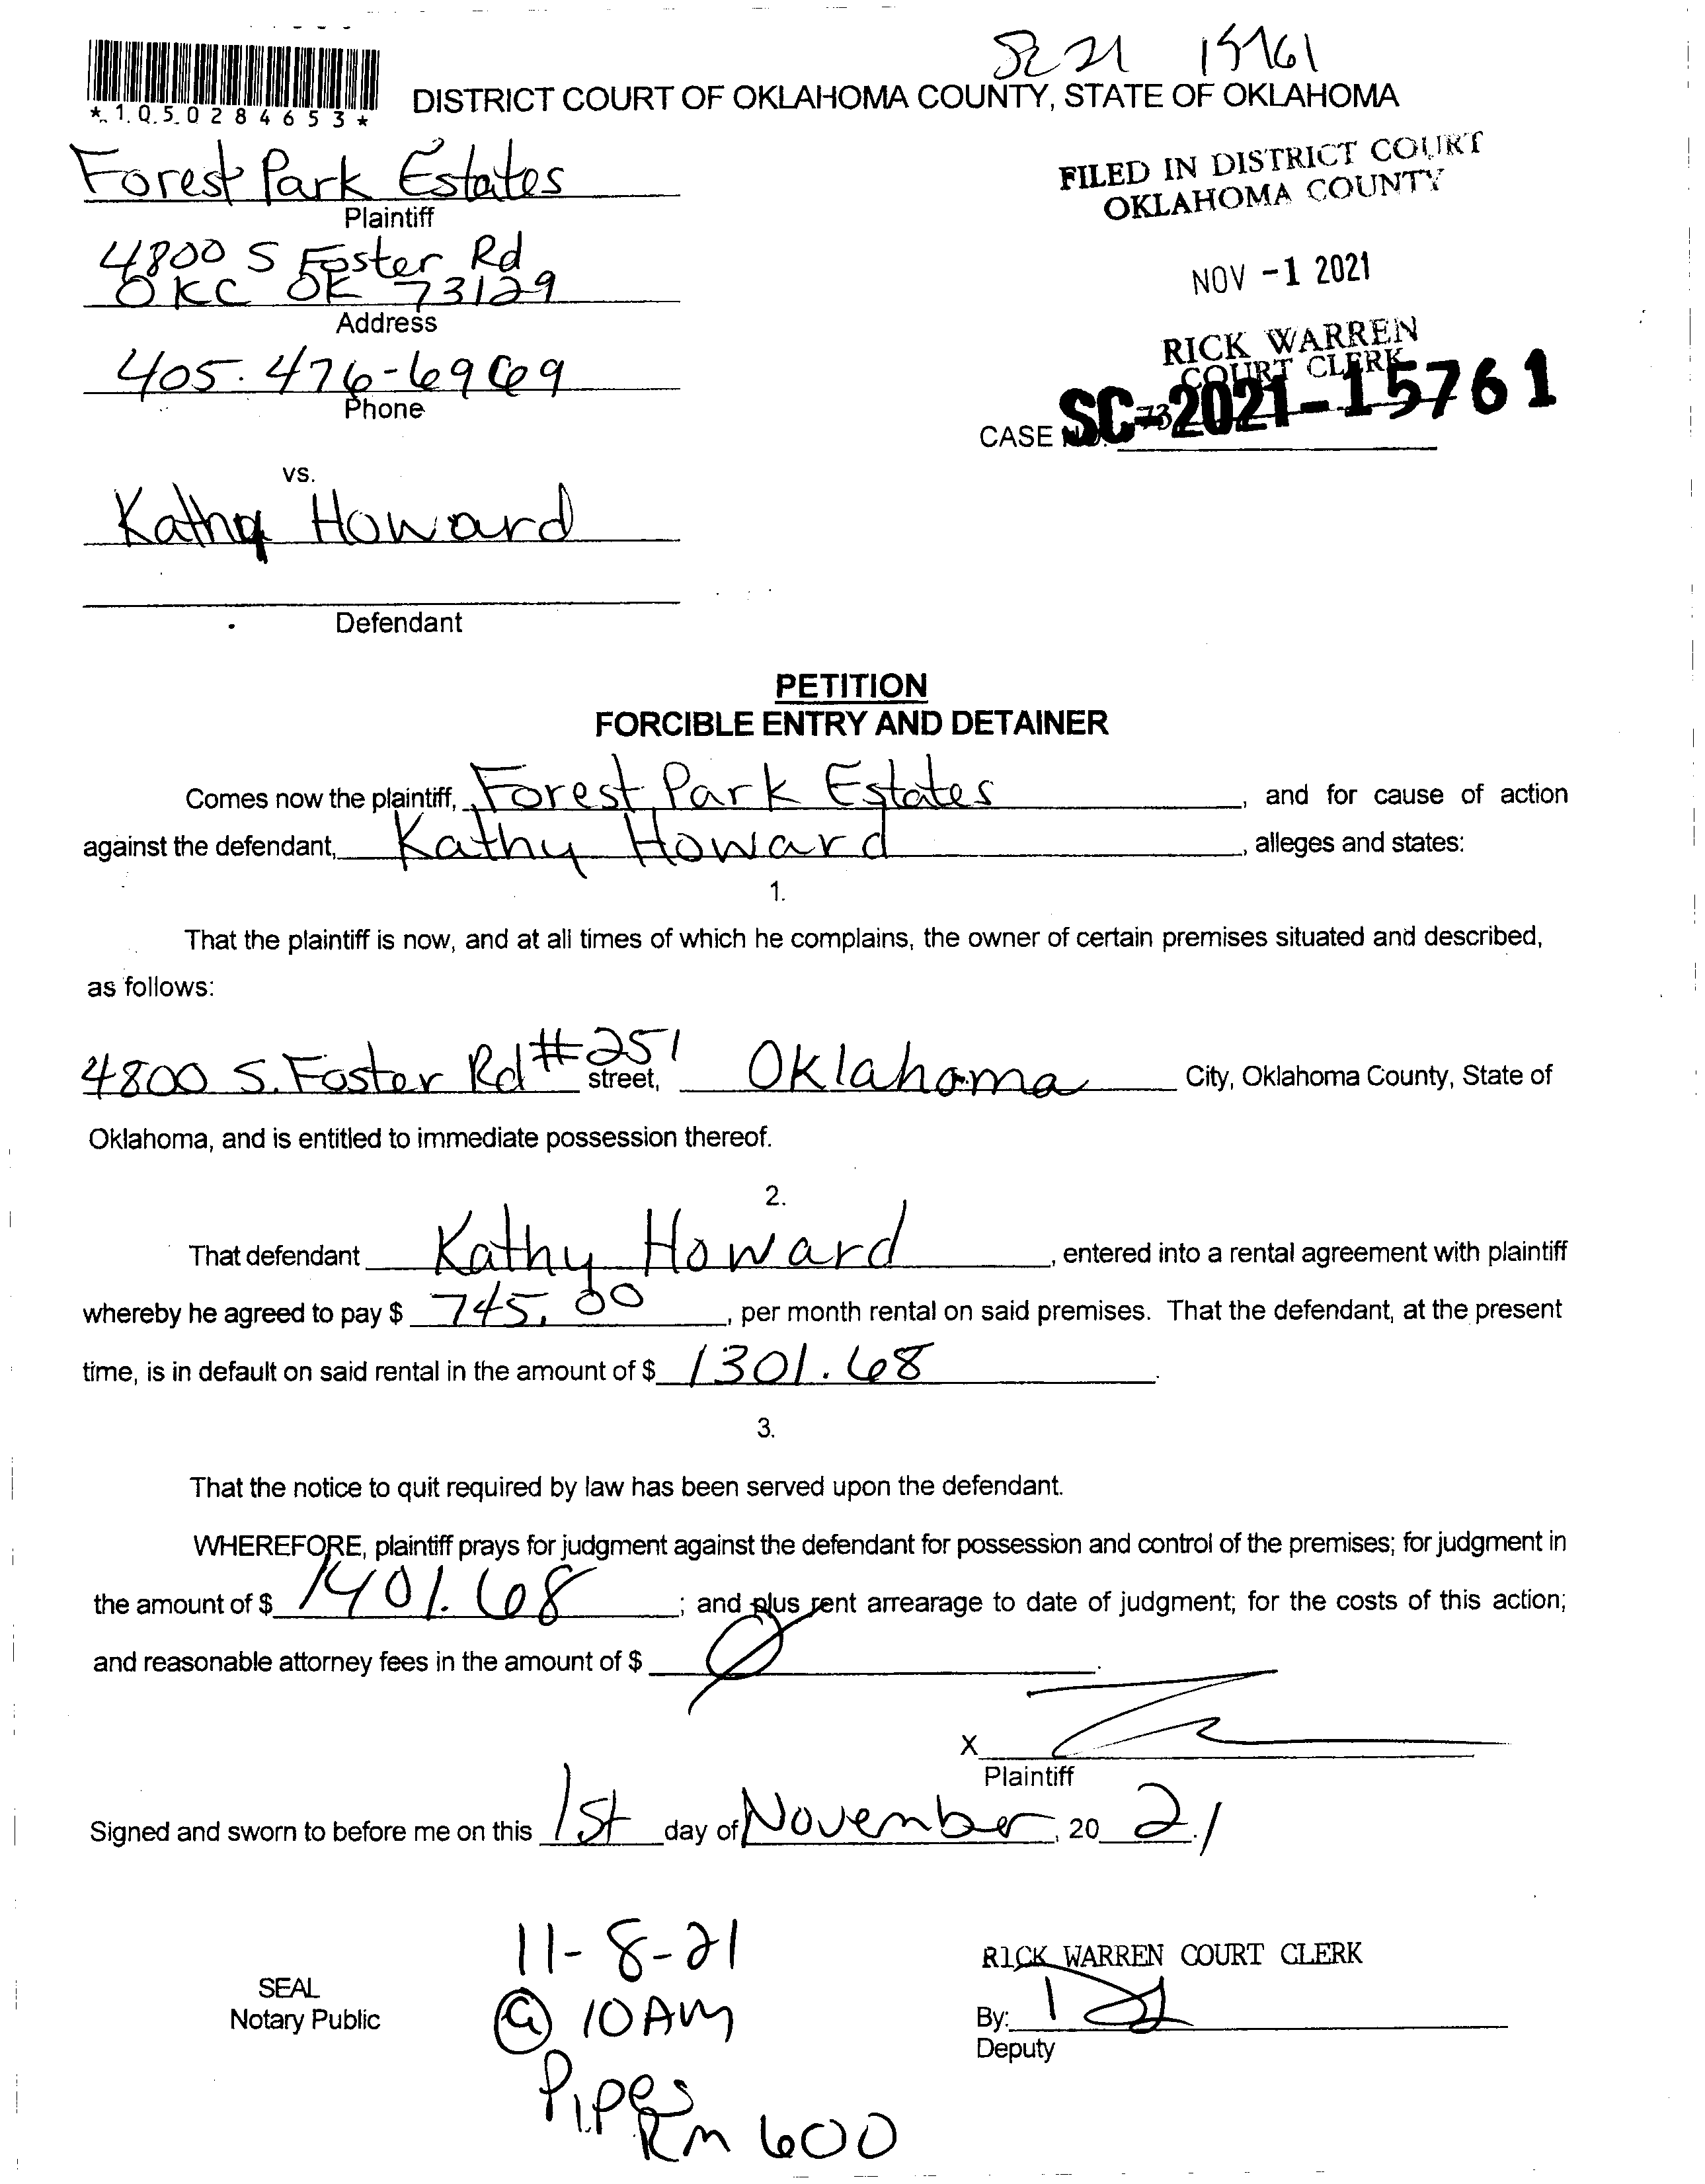 SC 21 15761
*1050284653*
DISTRICT COURT OF OKLAHOMA COUNTY, STATE OF OKLAHOMA
FILED IN DISTRICT COURT
OKLAHOMA COUNTY
Forest Park Estates
Plaintiff
4800 S Foster Rd
OKC OK 73129
Address
NOV -1 2021
405.476-6969
Phone
RICK WARREN
COURT CLERK
CASE NO. SC-2021-15761
73
vs.
Kathy Howard
Defendant
PETITION
FORCIBLE ENTRY AND DETAINER
Comes now the plaintiff, Forest Park Estates, and for cause of action
against the defendant, Kathy Howard, alleges and states:
1.
That the plaintiff is now, and at all times of which he complains, the owner of certain premises situated and described,
as follows:
4800 S. Foster Rd #251 street, Oklahoma City, Oklahoma County, State of
Oklahoma, and is entitled to immediate possession thereof.
2.
That defendant Kathy Howard, entered into a rental agreement with plaintiff
whereby he agreed to pay $ 745.00, per month rental on said premises. That the defendant, at the present
time, is in default on said rental in the amount of $ 1301.68.
3.
That the notice to quit required by law has been served upon the defendant.
WHEREFORE, plaintiff prays for judgment against the defendant for possession and control of the premises; for judgment in
the amount of $ 1401.68; and plus rent arrearage to date of judgment; for the costs of this action;
and reasonable attorney fees in the amount of $ Ø.
X
Plaintiff
Signed and sworn to before me on this 1st day of November, 20 21.
11-8-21
@ 10AM
Pipes
Rm 600
SEAL
Notary Public
RICK WARREN COURT CLERK
By:
Deputy